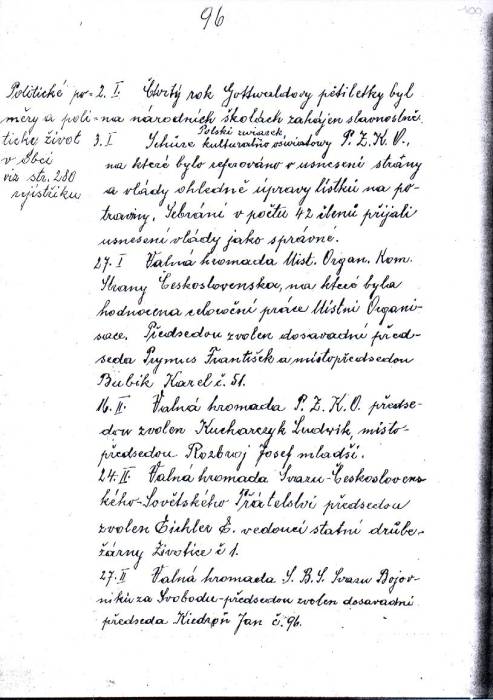 96
100
Politické po-
měry a poli-
tický život
v Obci
viz str. 280
rejstříku
2. I. Čtvrtý rok Gottwaldovy pětiletky byl
na národních školách zahájen slavnostně.
Polski zwiazek,
3. I Schůze kulturalňo oświatowy P. Z. K. O.,
na které bylo referováno o usnesení strany
a vlády ohledně úpravy lístků na po-
traviny. Sebrání v počtu 42 členů přijali
usnesení vlády jako správné.
27. I Valná hromada Míst. Organ. Kom.
Strany Československa, na které byla
hodnocena celoroční práce Místní Organi-
sace. Předsedou zvolen dosavadní před-
seda Prymus František a místopředsedou
Bubik Karel č. 51.
16. II. Valná hromada P. Z. K. O. předse-
dou zvolen Kucharczyk Ludwik, místo-
předsedou Rozbroj Josef mladší.
24. II. Valná hromada Svazu-Českosloven-
ského-Sovětského Přátelství předsedou
zvolen Eichler E. vedoucí statní drůbe-
žárny Životice č 1.
27. II Valná hromada S. B. S. Svazu Bojov-
níků za Svobodu-předsedou zvolen dosavadní
předseda Kiedroň Jan č. 96.